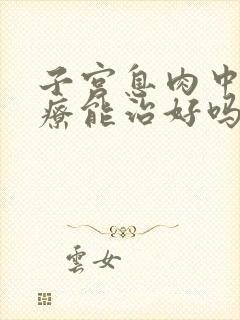 子宫息肉中
疗能治好吗
雲女